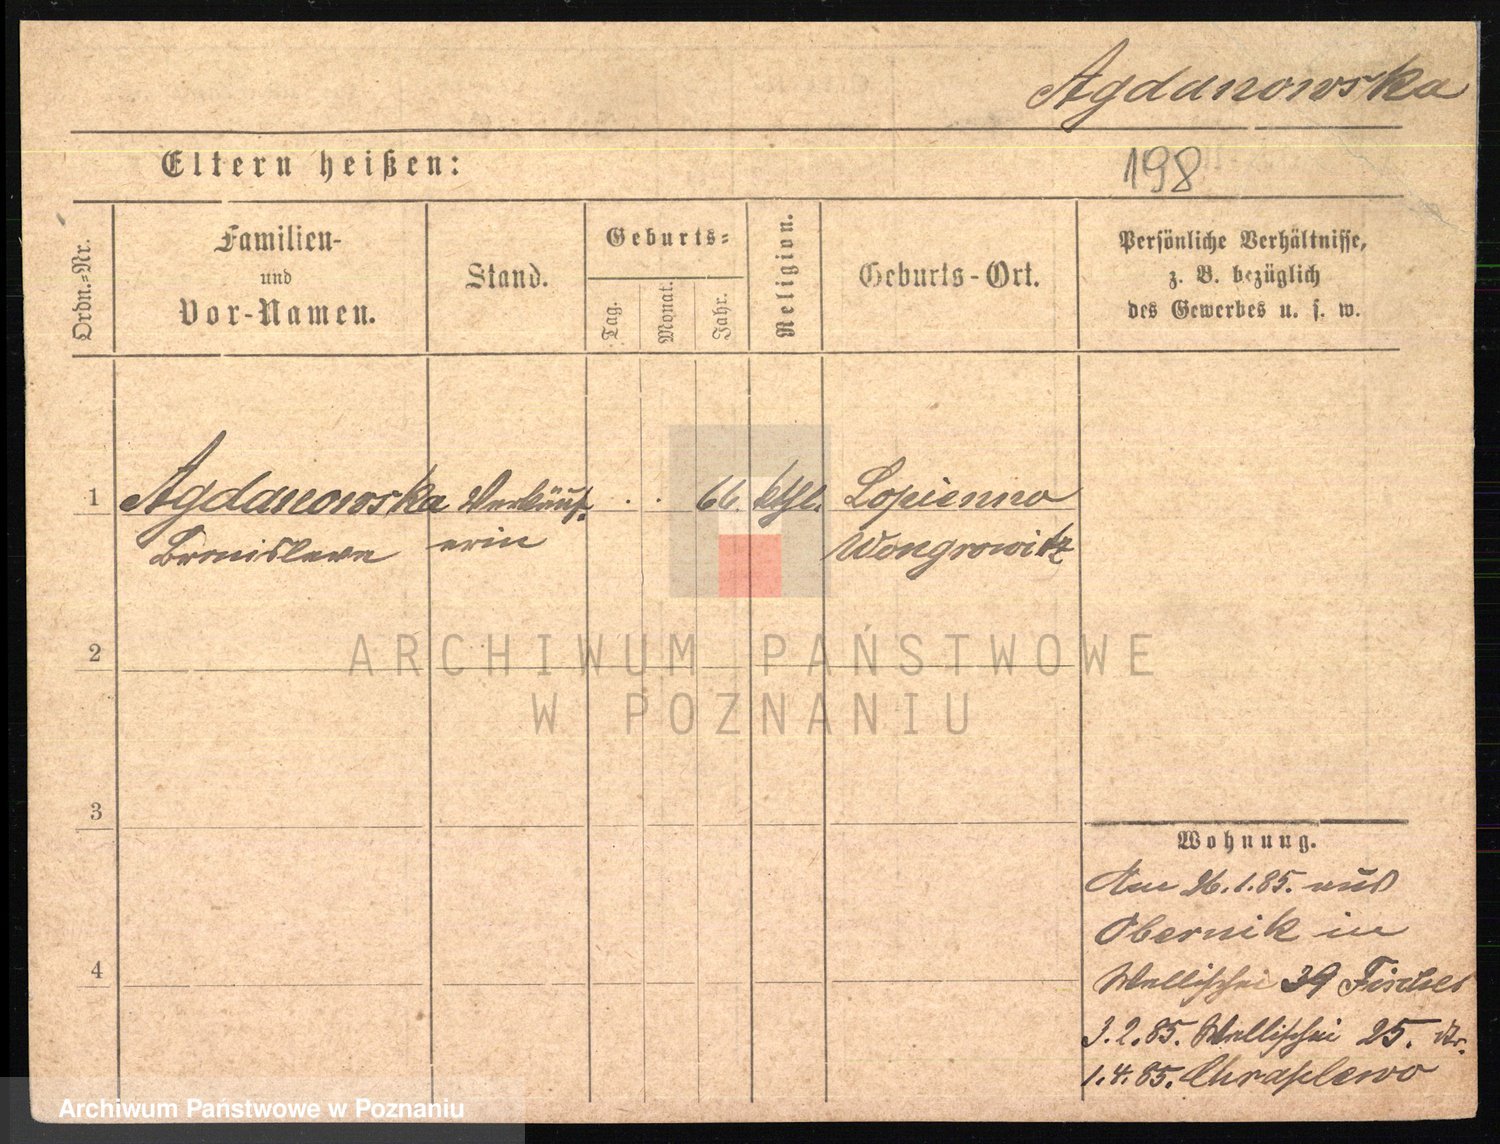 Agdanowska
Eltern heißen:
198
Ordn.-Nr.
Familien-
und
Vor-Namen.
Stand.
Geburts-
Tag.
Monat.
Jahr.
Religion.
Geburts-Ort.
Persönliche Verhältnisse,
z. B. bezüglich
des Gewerbes u. s. w.
1 Agdanowska Verkäuf- . . 66. kthl. Lopienno
Bronislawa erin Wongrowitz
2
3
4
Wohnung.
Am 26.1.85. aus
Obernik in
Wallischei 39 Fischer
3.2.85. Wallischei 25.
1.4.85. Chraplewo
ARCHIWUM PAŃSTWOWE
W POZNANIU
Archiwum Państwowe w Poznaniu